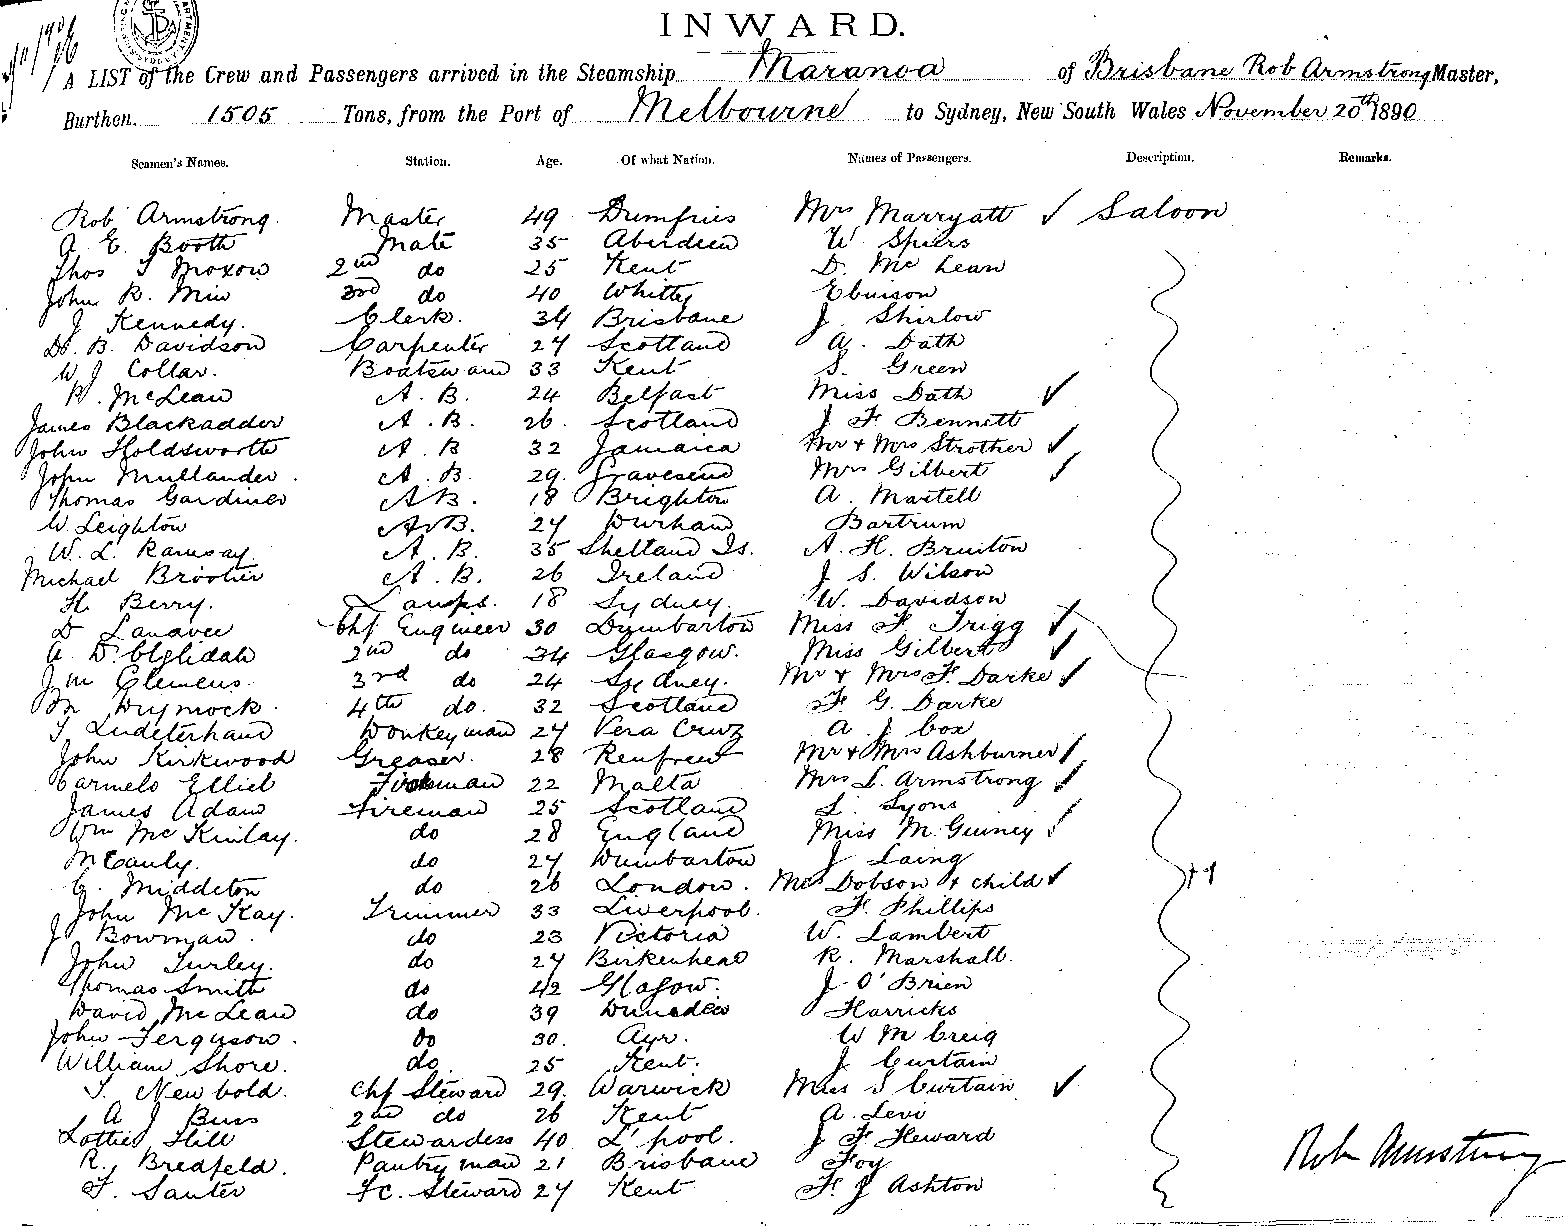 INWARD.
A LIST of the Crew and Passengers arrived in the Steamship Maranoa of Brisbane Rob Armstrong Master,
Burthen. 1505 Tons, from the Port of Melbourne to Sydney, New South Wales November 20th 1890
Seamen's Names. Station. Age. Of what Nation. Names of Passengers. Description. Remarks.
Rob Armstrong. Master 49 Dumfries Mrs Marryatt ✓ Saloon
A E. Booth Mate 35 Aberdeen W Spiers
Thos T Moxow 2nd do 25 Kent D. McLean
John R. Min 3rd do 40 Whitby Ebuison
J Kennedy. Clerk. 34 Brisbane J. Shirlow
D. B. Davidson Carpenter 27 Scotland A. Dath
W J Collar. Boatswain 33 Kent S. Green
R. McLean A. B. 24 Belfast Miss Dath ✓
James Blackadder A. B. 26. Scotland J F Bennett
John Holdsworth A. B 32 Jamaica Mr & Mrs Strother ✓
John Mullander. A. B. 29. Gravesend Mrs Gilbert ✓
Thomas Gardiner A B. 18 Brighton A. Martell
W. Leighton A B. 27 Durham Bartrum
W. L. Ramsay. A. B. 35 Shetland Is. A. H. Bruiton
Michael A. B. 26 Ireland J. S. Wilson
H. Berry. Lamps. 18 Sydney. W. Davidson
D Chf Engineer 30 Dumbarton Miss F Trigg ✓
A. D. 2nd do 34 Glasgow. Miss Gilbert ✓
Jm Clemens. 3rd do 24 Sydney. Mr & Mrs F. Darke ✓
M Dymock. 4th do. 32 Scotland F G. Darke
T Donkeyman 27 Vera Cruz A J Cox
John Kirkwood Greaser. 28 Renfrew Mr & Mrs Ashburner ✓
Carmelo Elliel Fireman 22 Malta Mrs L. Armstrong ✓
James Adam Fireman 25 Scotland L. Lyons
Wm McKinlay. do 28 England Miss M. Guiney ✓
McCauly. do 27 Dumbarton J Laing
G. Middleton do 26 London. Mrs Dobson & child ✓
John McKay. Trimmer 33 Liverpool. F. Phillips
J Bowman. do 23 Victoria W. Lambert
John Turley. do 27 Birkenhead R. Marshall.
Thomas Smith do 42 Glasgow. J O'Brien
David McLean do 39 Dunedin Harricks
John Ferguson. do 30. Ayr. W M Creig
William Shore. do 25 Kent. J Curtain
T. Newbold. Chf Steward 29. Warwick Miss S Curtain ✓
A J Buss 2nd do 26 Kent A. Levi
Lottie Hill Stewardess 40 L'pool. J F Heward
R. Bredfeld. Pantryman 21 Brisbane Foy
F. Santer Fc. Steward 27 Kent F. J Ashton
Rob Armstrong